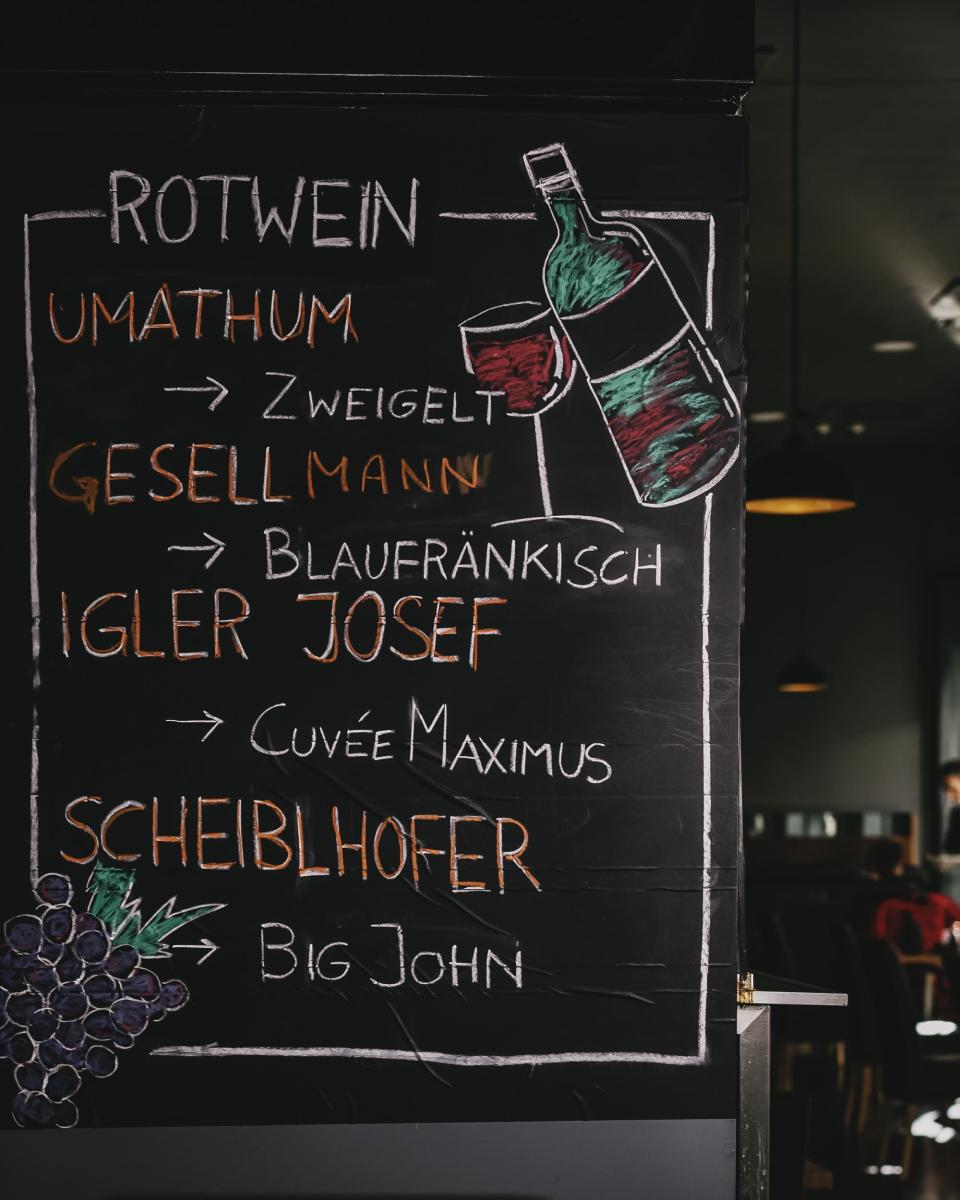 ROTWEIN
UMATHUM
→ ZWEIGELT
GESELLMANN
→ BLAUFRÄNKISCH
IGLER JOSEF
→ CUVÉE MAXIMUS
SCHEIBLHOFER
→ BIG JOHN